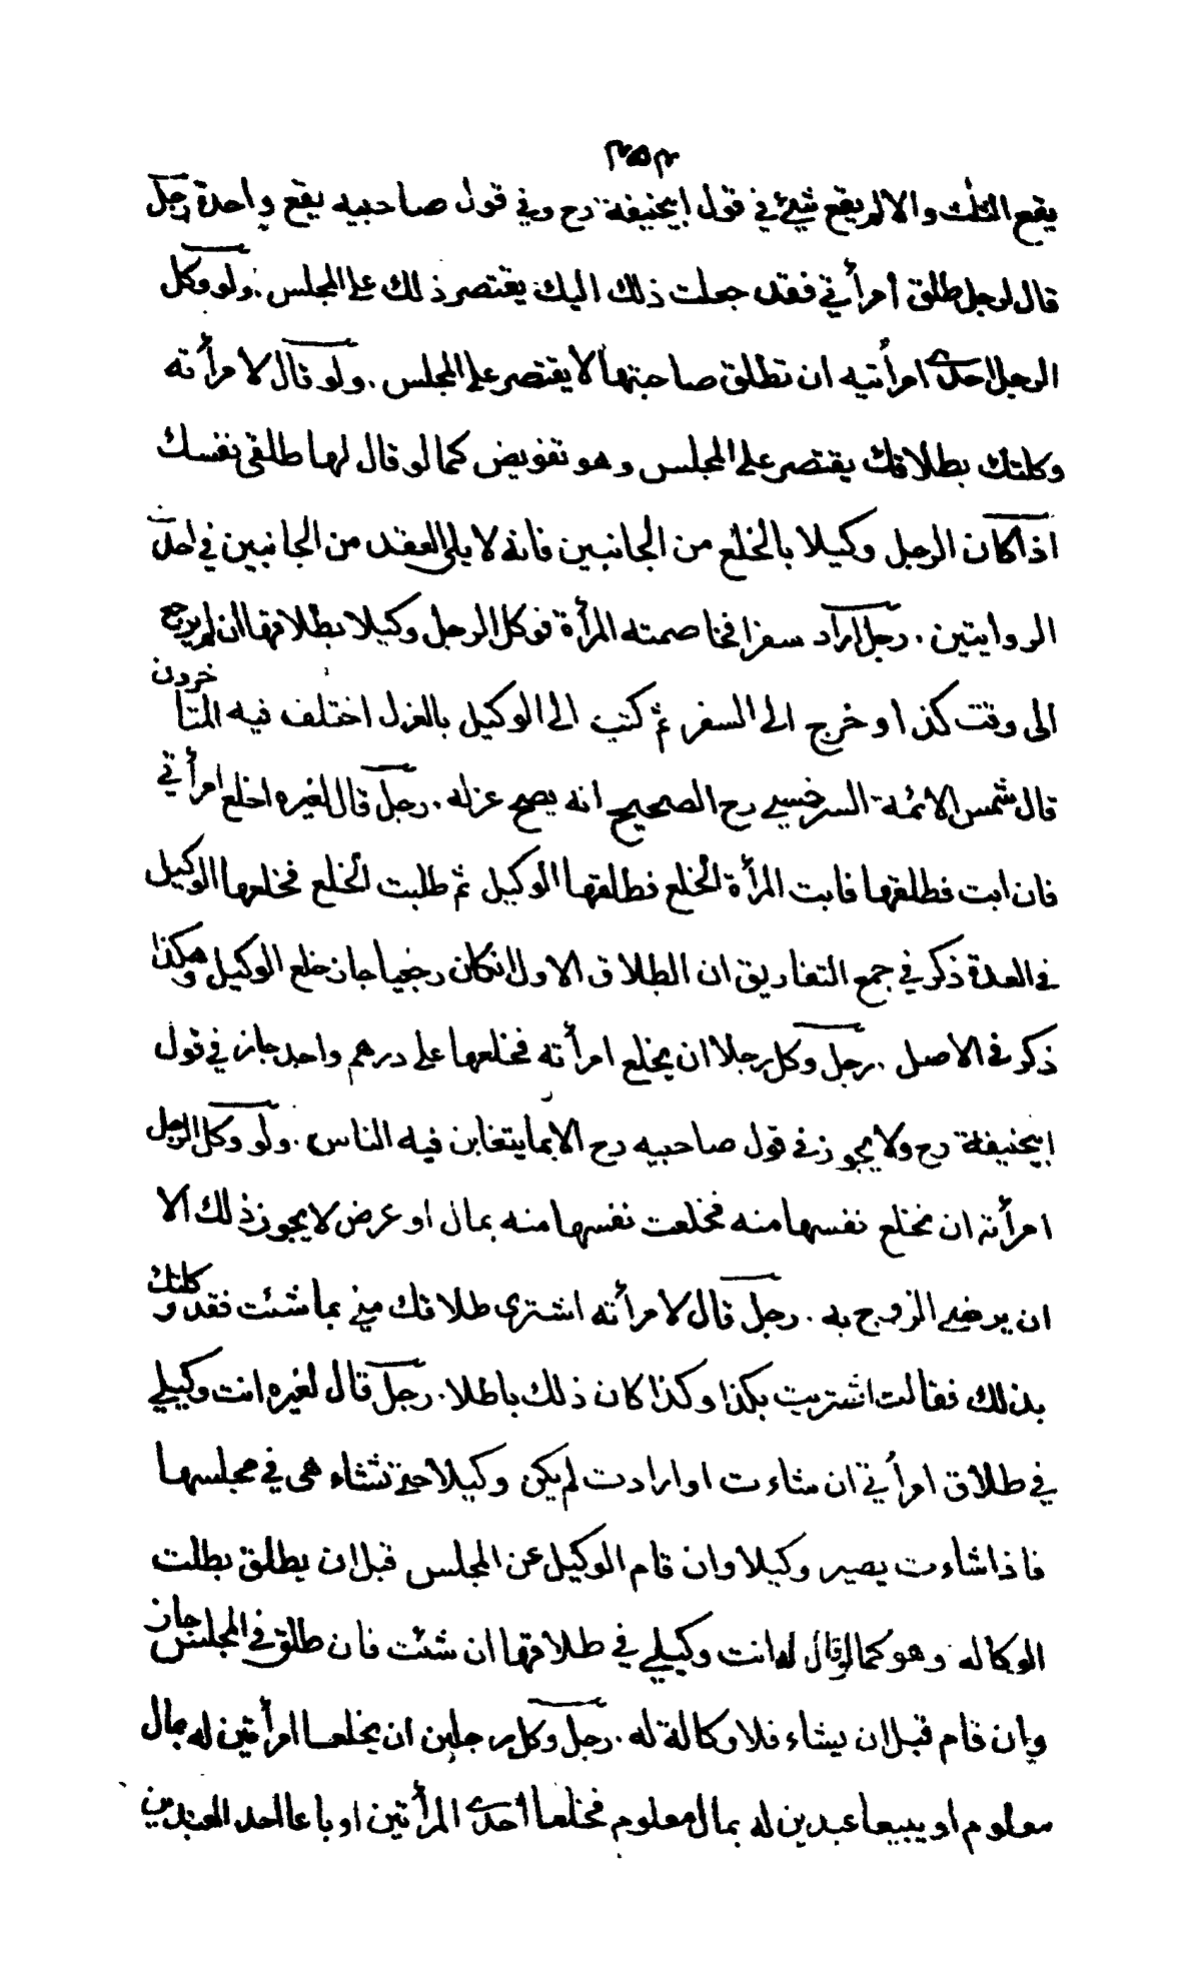 ٣٥٣
يقع الثلث والا لم يقع شيئ في قول ابيحنيفة رح وفي قول صاحبيه يقع واحدة رجل
قال لرجل طلق امرأتي فقد جعلت ذلك اليك يقتصر ذلك على المجلس . ولو وكل
الرجل احدى امرأتيه ان تطلق صاحبتها لا يقتصر على المجلس . ولو قال لامرأته
وكلتك بطلاقك يقتصر على المجلس وهو تفويض كما لو قال لها طلقي نفسك
اذا كان الرجل وكيلا بالخلع من الجانبين فانه لا يلي العقد من الجانبين في احدى
الروايتين . رجل اراد سفرا فخاصمته المرأة فوكل الرجل وكيلا بطلاقها ان لم يرجع
الى وقت كذا وخرج الى السفر ثم كتب الى الوكيل بالعزل اختلف فيه المتأخرون
قال شمس الائمة السرخسي رح الصحيح انه يصح عزله . رجل قال لغيره اخلع امرأتي
فان ابت فطلقها فابت المرأة الخلع فطلقها الوكيل ثم طلبت الخلع فخلعها الوكيل
في العدة ذكر في جمع التفاريق ان الطلاق الاول انكان رجعيا جاز خلع الوكيل وهكذا
ذكر في الاصل . رجل وكل رجلا ان يخلع امرأته فخلعها على درهم واحد جاز في قول
ابيحنيفة رح ولا يجوز في قول صاحبيه رح الا بما يتغابن فيه الناس . ولو وكل الرجل
امرأته ان تخلع نفسها منه فخلعت نفسها منه بمال او عرض لا يجوز ذلك الا
ان يرضى الزوج به . رجل قال لامرأته اشترى طلاقك مني بما شئت فقد وكلتك
بذلك فقالت اشتريت بكذا وكذا كان ذلك باطلا . رجل قال لغيره انت وكيلي
في طلاق امرأتي ان شاءت او ارادت لم يكن وكيلا حتى تشاء هي في مجلسها
فاذا شاءت يصير وكيلا وان قام الوكيل عن المجلس قبل ان يطلق بطلت
الوكاله وهو كما لو قال له انت وكيلي في طلاقها ان شئت فان طلق في المجلس جاز
وان قام قبل ان يشاء فلا وكالة له . رجل وكل رجلين ان يخلعا امرأتين له بمال
معلوم او يبيعا عبدين له بمال معلوم فخلعا احدى المرأتين او باعا احد العبدين